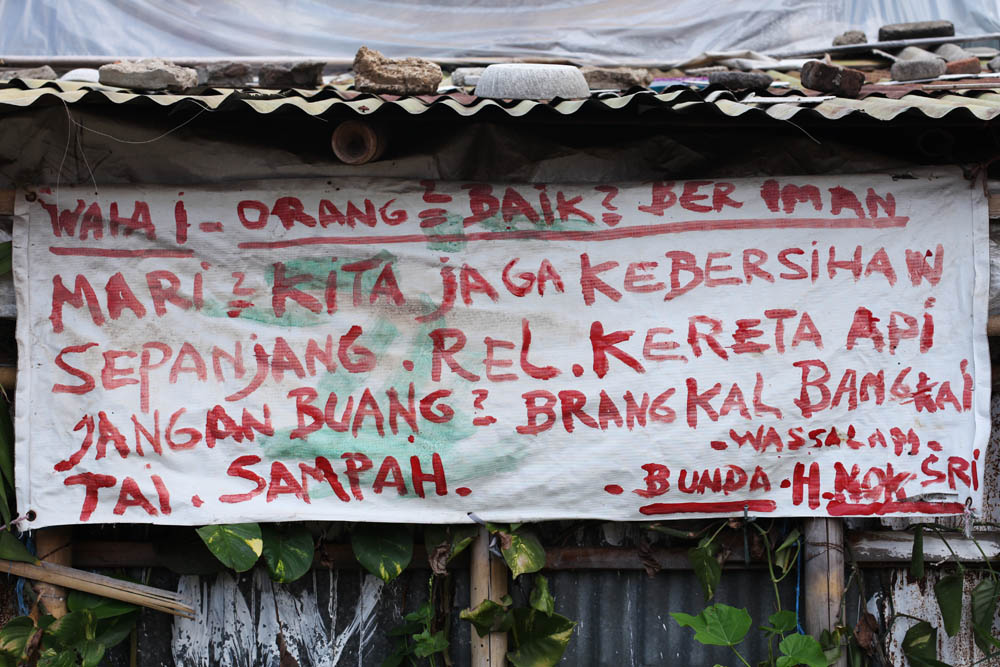 WAHAI - ORANG2 BAIK2 BER IMAN
MARI2 KITA JAGA KEBERSIHAN
SEPANJANG. REL. KERETA API
JANGAN BUANG2 BRANGKAL BANGKAI
TAI. SAMPAH.
- WASSALAM -
- BUNDA. H. NOK SRI